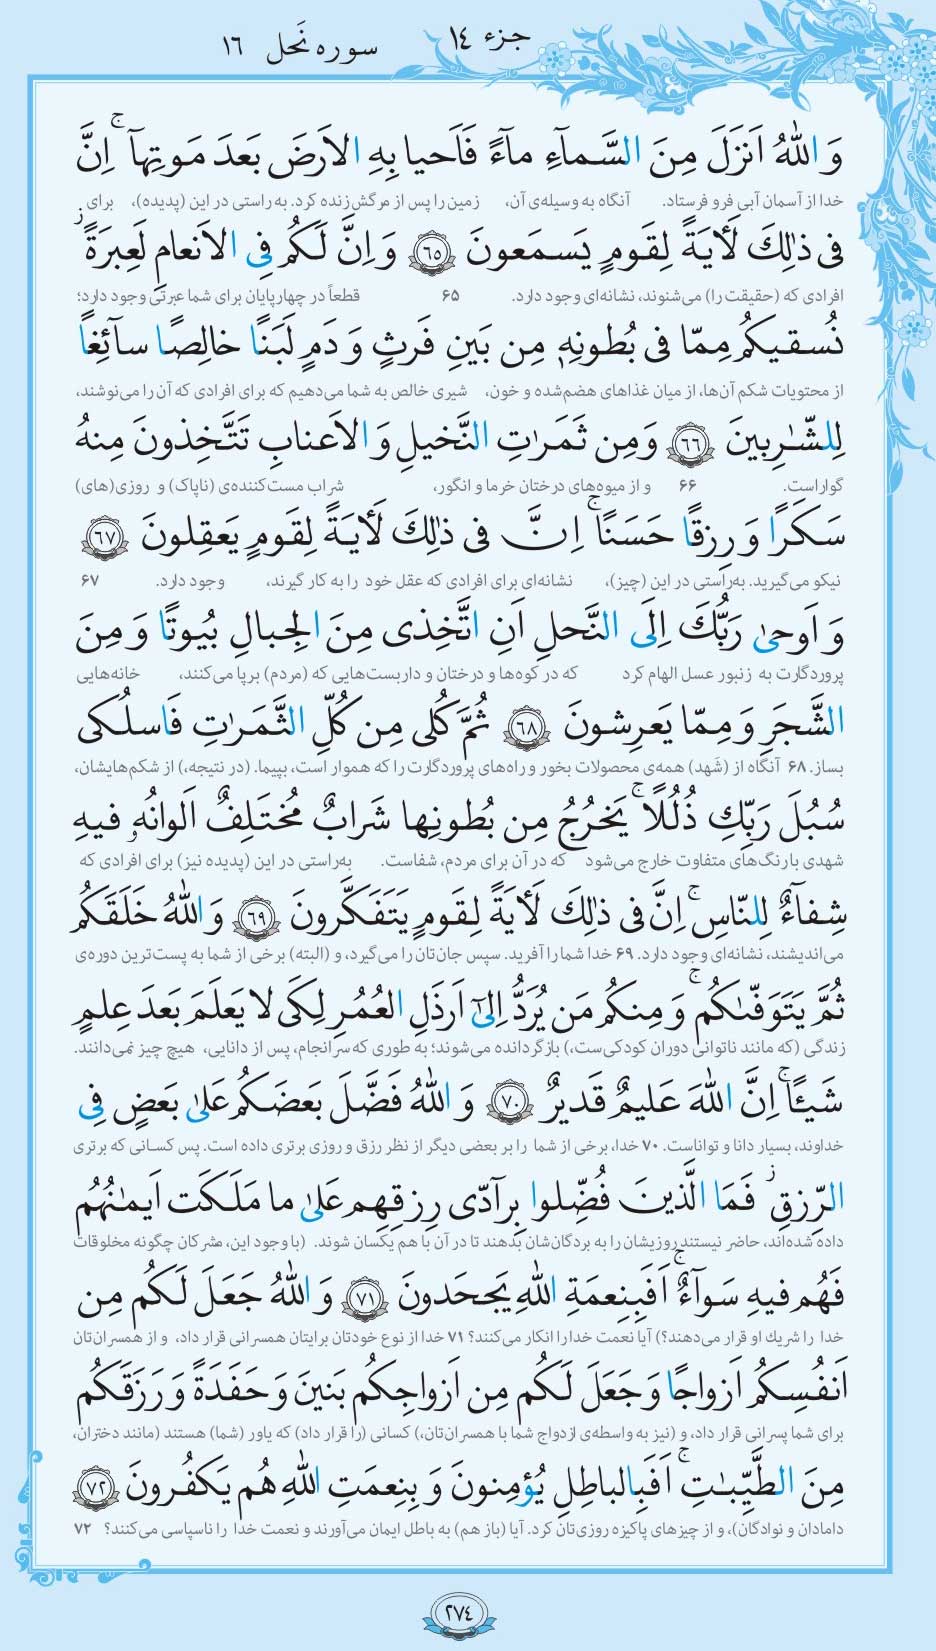 جزء ۱۴
سوره نَحل ۱۶
وَ اللّٰهُ اَنزَلَ مِنَ السَّماءِ ماءً فَاَحيا بِهِ الاَرضَ بَعدَ مَوتِهاۤ ۚ اِنَّ
خدا از آسمان آبی فرو فرستاد. آنگاه به وسیله‌ی آن، زمین را پس از مرگش زنده کرد. به راستی در این (پدیده)، برای
فی ذٰلِكَ لَأٰیَةً لِقَومٍ یَسمَعونَ ﴿٦٥﴾ وَ اِنَّ لَكُم فِی الاَنعامِ لَعِبرَةً ۖ
افرادی که (حقیقت را) می‌شنوند، نشانه‌ای وجود دارد. ۶۵ قطعاً در چهارپایان برای شما عبرتی وجود دارد؛
نُسقیكُم مِمّا فی بُطونِهٖ مِن بَینِ فَرثٍ وَ دَمٍ لَبَنًا خالِصًا سآئِغًا
از محتویات شکم آن‌ها، از میان غذاهای هضم‌شده و خون، شیری خالص به شما می‌دهیم که برای افرادی که آن را می‌نوشند،
لِلشّٰرِبینَ ﴿٦٦﴾ وَ مِن ثَمَرٰتِ النَّخیلِ وَ الاَعنابِ تَتَّخِذونَ مِنهُ
گواراست. ۶۶ و از میوه‌های درختان خرما و انگور، شراب مست‌کننده‌ی (ناپاک) و روزی(های)
سَكَرًا وَ رِزقًا حَسَنًا ۚ اِنَّ فی ذٰلِكَ لَأٰیَةً لِقَومٍ یَعقِلونَ ﴿٦٧﴾
نیکو می‌گیرید. به‌راستی در این (چیز)، نشانه‌ای برای افرادی که عقل خود را به کار گیرند، وجود دارد. ۶۷
وَ اَوحیٰ رَبُّكَ اِلَی النَّحلِ اَنِ اتَّخِذی مِنَ الجِبالِ بُیوتًا وَ مِنَ
پروردگارت به زنبور عسل الهام کرد که در کوه‌ها و درختان و داربست‌هایی که (مردم) برپا می‌کنند، خانه‌هایی
الشَّجَرِ وَ مِمّا یَعرِشونَ ﴿٦٨﴾ ثُمَّ كُلی مِن كُلِّ الثَّمَرٰتِ فَاسلُكی
بساز. ۶۸ آنگاه از (شَهد) همه‌ی محصولات بخور و راه‌های پروردگارت را که هموار است، بپیما. (در نتیجه،) از شکم‌هایشان،
سُبُلَ رَبِّكِ ذُلُلًا ۚ یَخرُجُ مِن بُطونِها شَرابٌ مُختَلِفٌ اَلوانُهٗ فیهِ
شهدی با رنگ‌های متفاوت خارج می‌شود که در آن برای مردم، شفاست. به‌راستی در این (پدیده نیز) برای افرادی که
شِفآءٌ لِلنّاسِ ۚ اِنَّ فی ذٰلِكَ لَأٰیَةً لِقَومٍ یَتَفَكَّرونَ ﴿٦٩﴾ وَ اللّٰهُ خَلَقَكُم
می‌اندیشند، نشانه‌ای وجود دارد. ۶۹ خدا شما را آفرید. سپس جان‌تان را می‌گیرد، و (البته) برخی از شما به پست‌ترین دوره‌ی
ثُمَّ یَتَوَفّٰكُم ۚ وَ مِنكُم مَن یُرَدُّ اِلیٰٓ اَرذَلِ العُمُرِ لِكَی لا یَعلَمَ بَعدَ عِلمٍ
زندگی (که مانند ناتوانی دوران کودکی‌ست،) بازگردانده می‌شوند؛ به طوری که سرانجام، پس از دانایی، هیچ چیز نمی‌دانند.
شَیـًٔا ۚ اِنَّ اللّٰهَ عَلیمٌ قَدیرٌ ﴿٧٠﴾ وَ اللّٰهُ فَضَّلَ بَعضَكُم عَلیٰ بَعضٍ فِی
خداوند، بسیار دانا و تواناست. ۷۰ خدا، برخی از شما را بر بعضی دیگر از نظر رزق و روزی برتری داده است. پس کسانی که برتری
الرِّزقِ ۖ فَمَا الَّذینَ فُضِّلوا بِرآدّی رِزقِهِم عَلیٰ ما مَلَكَت اَیمٰنُهُم
داده شده‌اند، حاضر نیستند روزیشان را به بردگان‌شان بدهند تا در آن با هم یکسان شوند. (با وجود این، مشرکان چگونه مخلوقات
فَهُم فیهِ سَوآءٌ ۚ اَفَبِنِعمَةِ اللّٰهِ یَجحَدونَ ﴿٧١﴾ وَ اللّٰهُ جَعَلَ لَكُم مِن
خدا را شریك او قرار می‌دهند؟) آیا نعمت خدا را انکار می‌کنند؟ ۷۱ خدا از نوع خودتان برایتان همسرانی قرار داد، و از همسران‌تان
اَنفُسِكُم اَزواجًا وَ جَعَلَ لَكُم مِن اَزواجِكُم بَنینَ وَ حَفَدَةً وَ رَزَقَكُم
برای شما پسرانی قرار داد، و (نیز به واسطه‌ی ازدواج شما با همسران‌تان،) کسانی (را قرار داد) که یاور (شما) هستند (مانند دختران،
مِنَ الطَّیِّبٰتِ ۚ اَفَبِالباطِلِ یُؤمِنونَ وَ بِنِعمَتِ اللّٰهِ هُم یَكفُرونَ ﴿٧٢﴾
دامادان و نوادگان)، و از چیزهای پاکیزه روزی‌تان کرد. آیا (باز هم) به باطل ایمان می‌آورند و نعمت خدا را ناسپاسی می‌کنند؟ ۷۲
۲۷۴